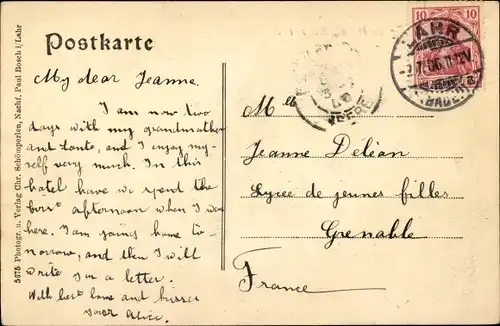 Postkarte
My dear Jeanne.
I am now two
days with my grandmother
and tante, and I enjoy my-
self very much. In this
hotel have we spend the
first afternoon when I was
here. I am going home to-
morrow, and then I will
write you a letter.
With best love and kisses
your Alice.
Mlle
Jeanne Deléan
Lycée de jeunes filles
Grenoble
France
10 10
LAHR
(BADEN)
ISERE
5675 Photogr. u. Verlag Chr. Schömperlen, Nachf. Paul Bosch i/Lahr